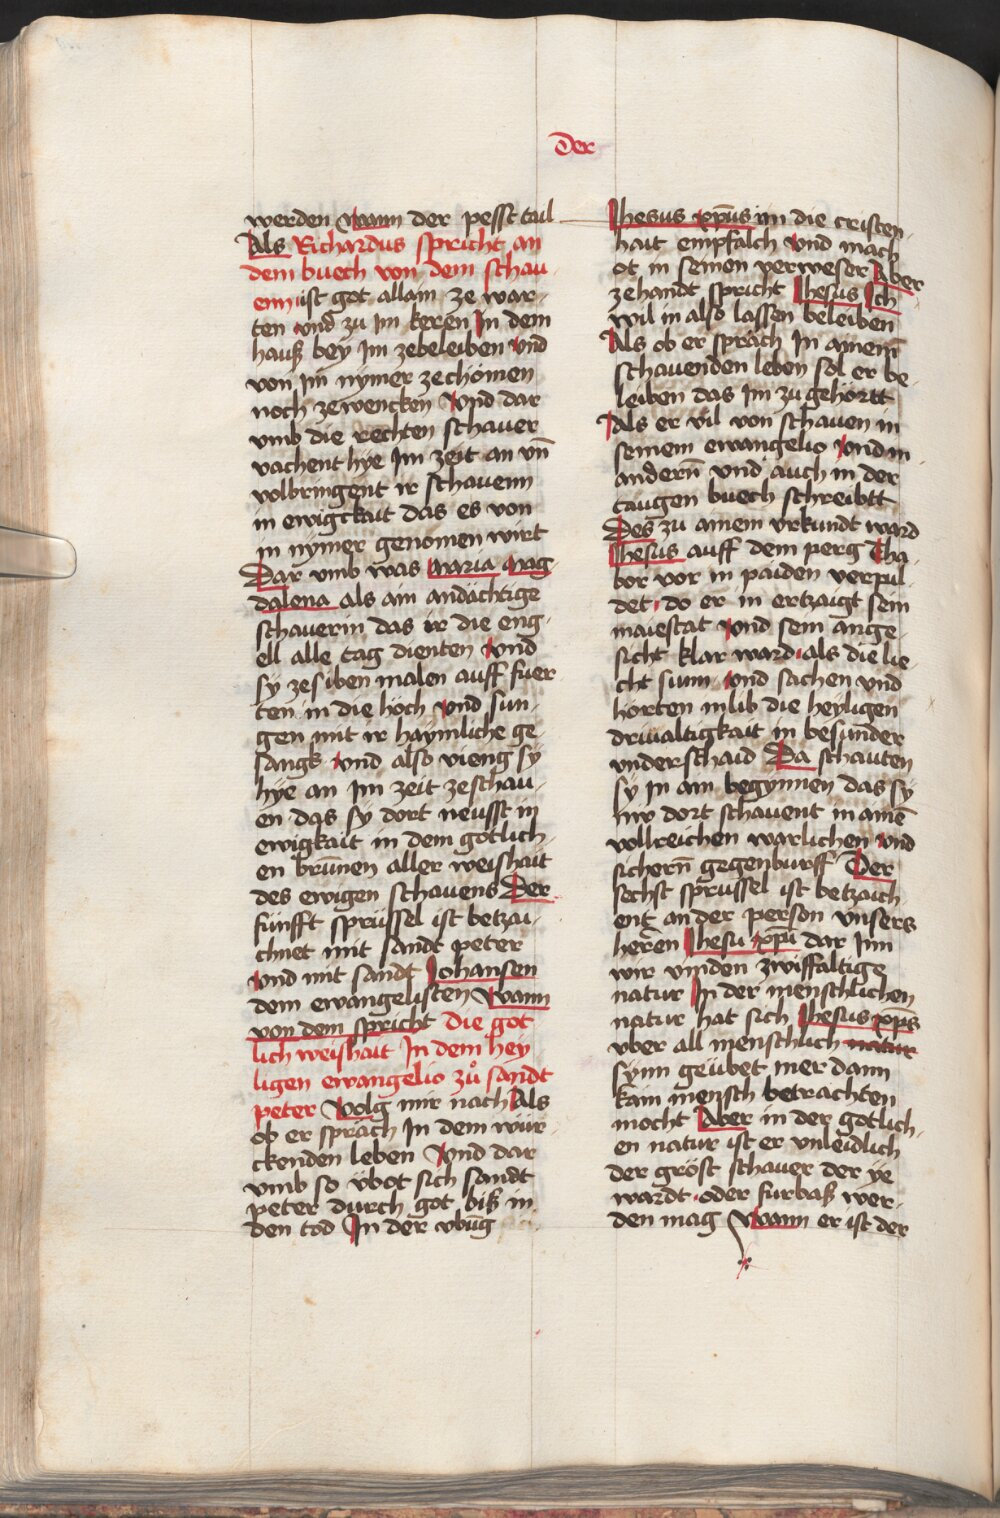 Der
werden wann der pesst tail
Als Richardus spricht an
dem buech von dem schau
enn ist got allain ze war-
ten und zu im keren In dem
hauß bey Im zebeleiben und
von im nymer zechömen
noch zewencken Vnd dar
vmb die rechten schauer
vachent hye Im zeit an vn̄
volbringent ir schauenn
in ewigkait das es von
in nymer genomen wirt
Dar vmb was maria mag
dalena als ain andächtige
schauerin das ir die eng-
ell alle tag dienten Vnd
sy ze siben malen auff fuer
ten in die höch Vnd sun-
gen mit ir haymliche ge
sangk Vnd also vieng sy
hye an Im zeit zeschau-
en das sy dort neusst in
ewigkait in dem götlich-
en brūnen aller weishait
des ewigen schauens Der
fünfft sprüssel ist betzai-
chnet mit sandt peter
Vnd mit sandt Johansen
dem ewangelisten Wann
von dem spricht die göt
lich weishait In dem hey
ligen ewangelio zů sandt
peter Volg mir nach Als
ob er spräch In dem wür
ckenden leben Vnd dar
vmb so vbot sich sandt
peter durch got biß in
den tod In der vbūg
Jhesus xp̄us im die cristen-
hait empfalch Vnd mach
ot in seinen verweser Aber
zehandt spricht Jhesus Ich
wil in also lassen beleiben
Als ob er spräch In ainem̄
schauenden leben sol er be-
leiben das Im zu gehörtt
Als er vil von schauen in
seinem ewangelio Vnd in
andern̄ vnd auch in der
taugen buech schreibtt
Des zu ainem vrkundt ward
Jhesus auff dem perg Tha
bor vor in paiden verpil-
det do er in ertzaigt sein
maiestat Vnd sein ange-
sicht klar ward als die lie-
cht sunn Vnd sachen vnd
horten inlib die heyligen
driualtigkait in besunder
vnderschaid Da schauten
sy in ain begynnen das sy
nw dort schauent in ainē
vollreichen warlichen vnd
sichern̄ gegenburff Der
sechst sprussel ist betzaich
ent an der person vnsers
herren Jhesu xp̄u dar Inn
wir vinden zwiffaltige
natur In der menschlichen
natur hat sich Jhesus xp̄s
vber all menschlich natur
synn geübet mer dann
kain mensch betrachten
mocht Aber in der götlich-
en natur ist er vnleidlich
der gröst schauer der ye
wardt oder furbaß wer-
den mag Wann er ist der